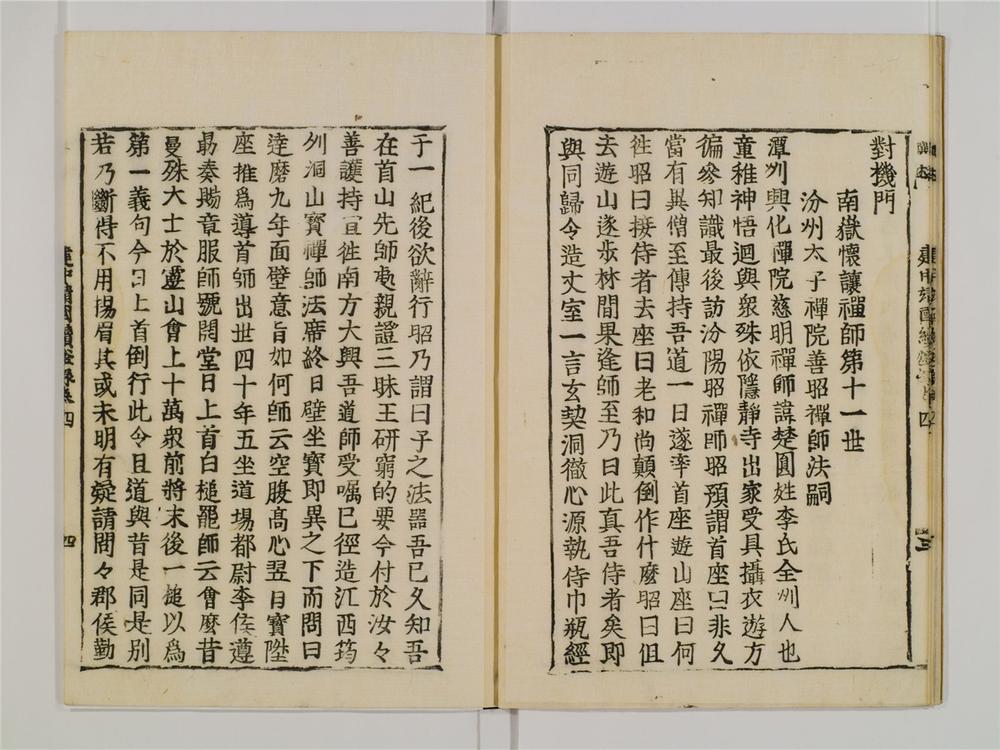 對機門
南嶽懷讓禪師第十一世
汾州太子禪院善昭禪師法嗣
潭州興化禪院慈明禪師諱楚圓姓李氏全州人也
童稚神悟迴與衆殊依隱靜寺出家受具攝衣遊方
徧參知識最後訪汾陽昭禪師昭預謂首座曰非久
當有異僧至傳持吾道一日遂率首座遊山座曰何
徃昭曰接侍者去座曰老和尚顛倒作什麼昭曰但
去遊山遂步林間果逢師至乃曰此真吾侍者矣即
與同歸令造丈室一言玄契洞徹心源執侍巾瓶經
于一紀後欲辭行昭乃謂曰子之法器吾已久知吾
在首山先師處親證三昧王研窮的要今付於汝々
善護持宜徃南方大興吾道師受嘱已徑造江西筠
州洞山寶禪師法席終日壁坐寶即異之下而問曰
達磨九年面壁意旨如何師云空腹髙心翌日寶陞
座推爲導首師出世四十年五坐道場都尉李侯遵
勗奏賜章服師號開堂日上首白槌罷師云會麼昔
曼殊大士於靈山會上十萬衆前將末後一槌以爲
第一義句今日上首倒行此令且道與昔是同是别
若乃斷得不用揚眉其或未明有疑請問々郡侯勤
四